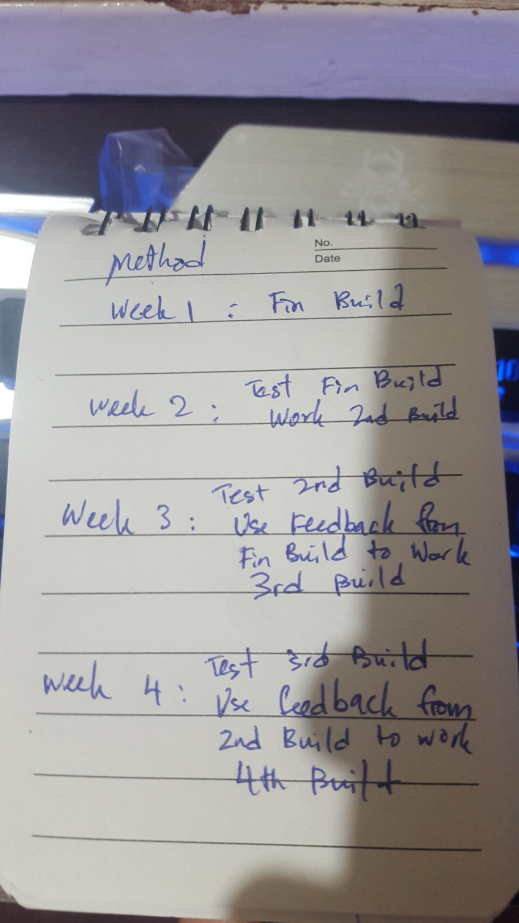 No.
Date
Method
Week 1 : Fin Build
Week 2 : Test Fin Build
Work 2nd Build
Week 3 : Test 2nd Build
Use Feedback from
Fin Build to Work
3rd Build
Week 4 : Test 3rd Build
Use feedback from
2nd Build to work
4th Build